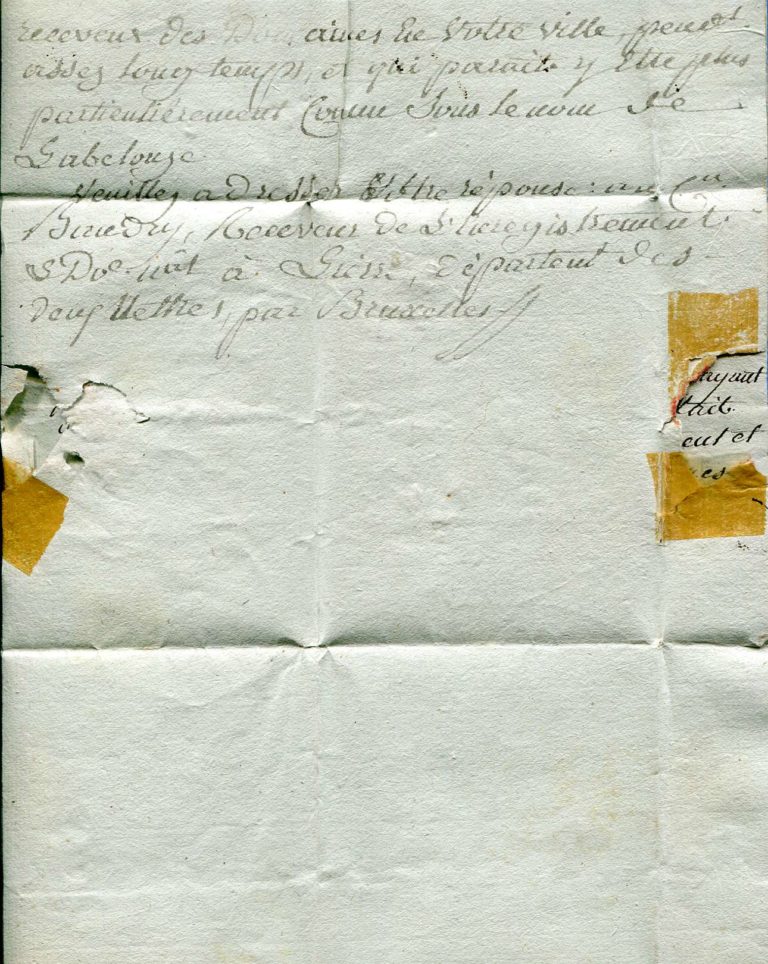 receveur des Domaines de Votre ville, pend.t
assez long temps, et qui parait y etre plus
particulièrement Connu Sous le nom de
Labelouze
Veuillez adresser Votre réponse: au C.en
Baudry, Receveur de l'Enregistrement,
& Do.e n.at à département des
deux Nethes, par Bruxelles
ayant
tait
ent et